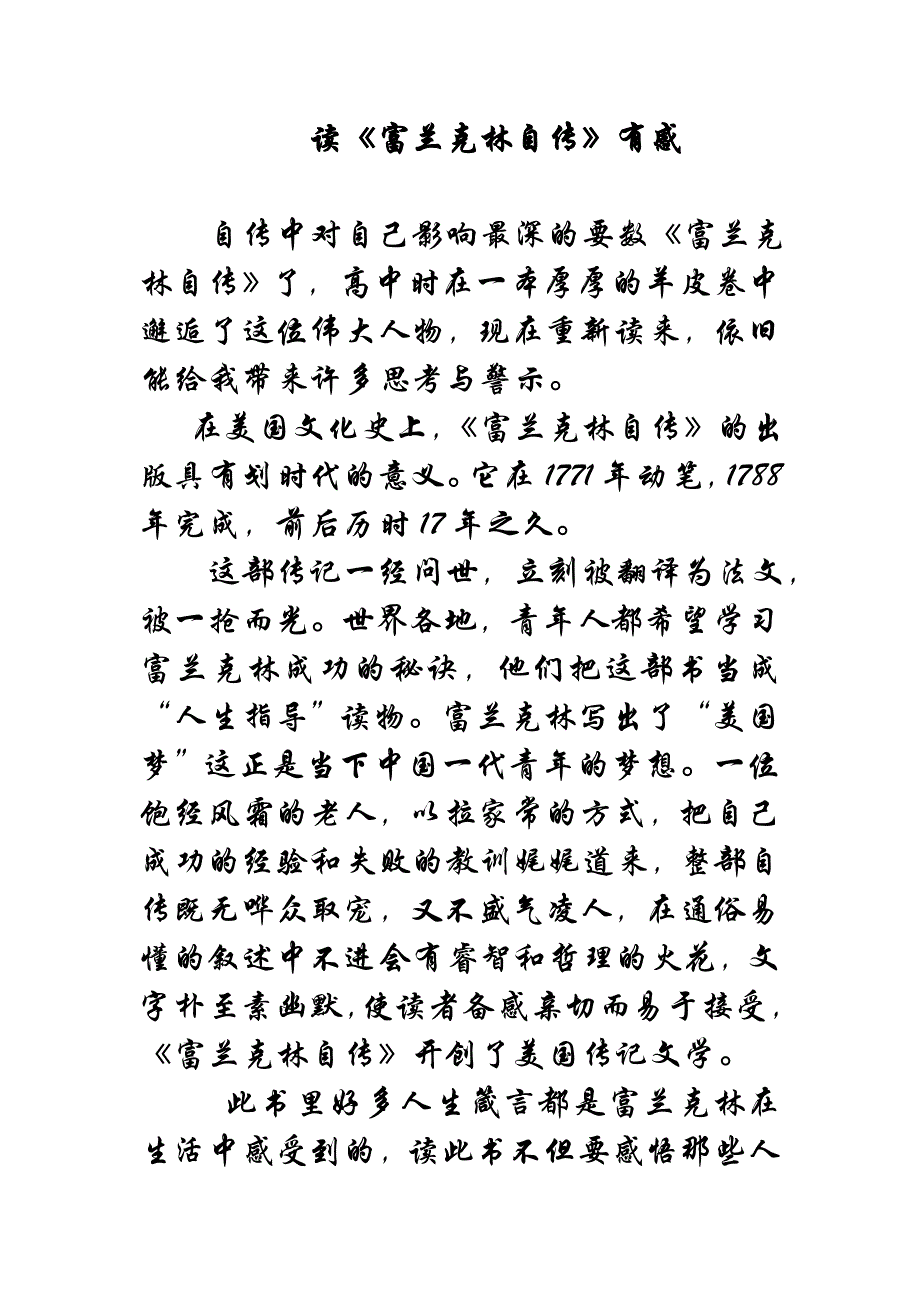 读《富兰克林自传》有感
自传中对自己影响最深的要数《富兰克
林自传》了，高中时在一本厚厚的羊皮卷中
邂逅了这位伟大人物，现在重新读来，依旧
能给我带来许多思考与警示。
在美国文化史上，《富兰克林自传》的出
版具有划时代的意义。它在1771年动笔，1788
年完成，前后历时17年之久。
这部传记一经问世，立刻被翻译为法文，
被一抢而光。世界各地，青年人都希望学习
富兰克林成功的秘诀，他们把这部书当成
“人生指导”读物。富兰克林写出了“美国
梦”这正是当下中国一代青年的梦想。一位
饱经风霜的老人，以拉家常的方式，把自己
成功的经验和失败的教训娓娓道来，整部自
传既无哗众取宠，又不盛气凌人，在通俗易
懂的叙述中不进会有睿智和哲理的火花，文
字朴至素幽默，使读者备感亲切而易于接受，
《富兰克林自传》开创了美国传记文学。
此书里好多人生箴言都是富兰克林在
生活中感受到的，读此书不但要感悟那些人